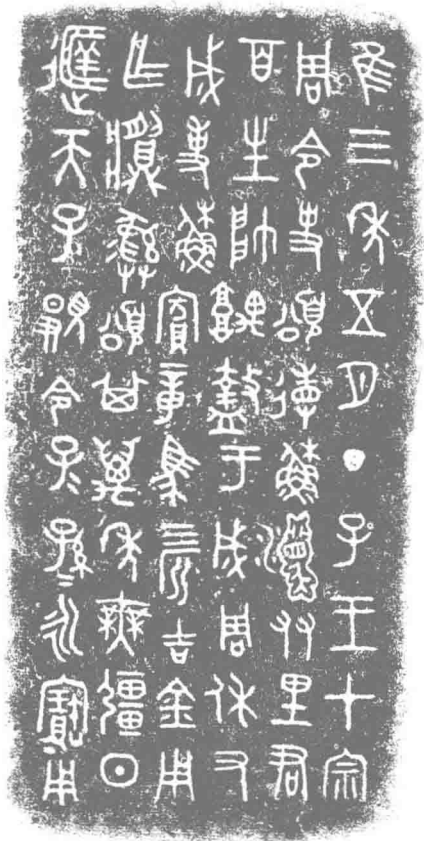 隹三年五月丁子王才宗
周令史頌省蘇友里君
百生帥堣盩于成周休又
成事蘇賓章馬四匹吉金用
乍䵼彝頌其萬年無疆日
天子顯令子=孫=永寶用